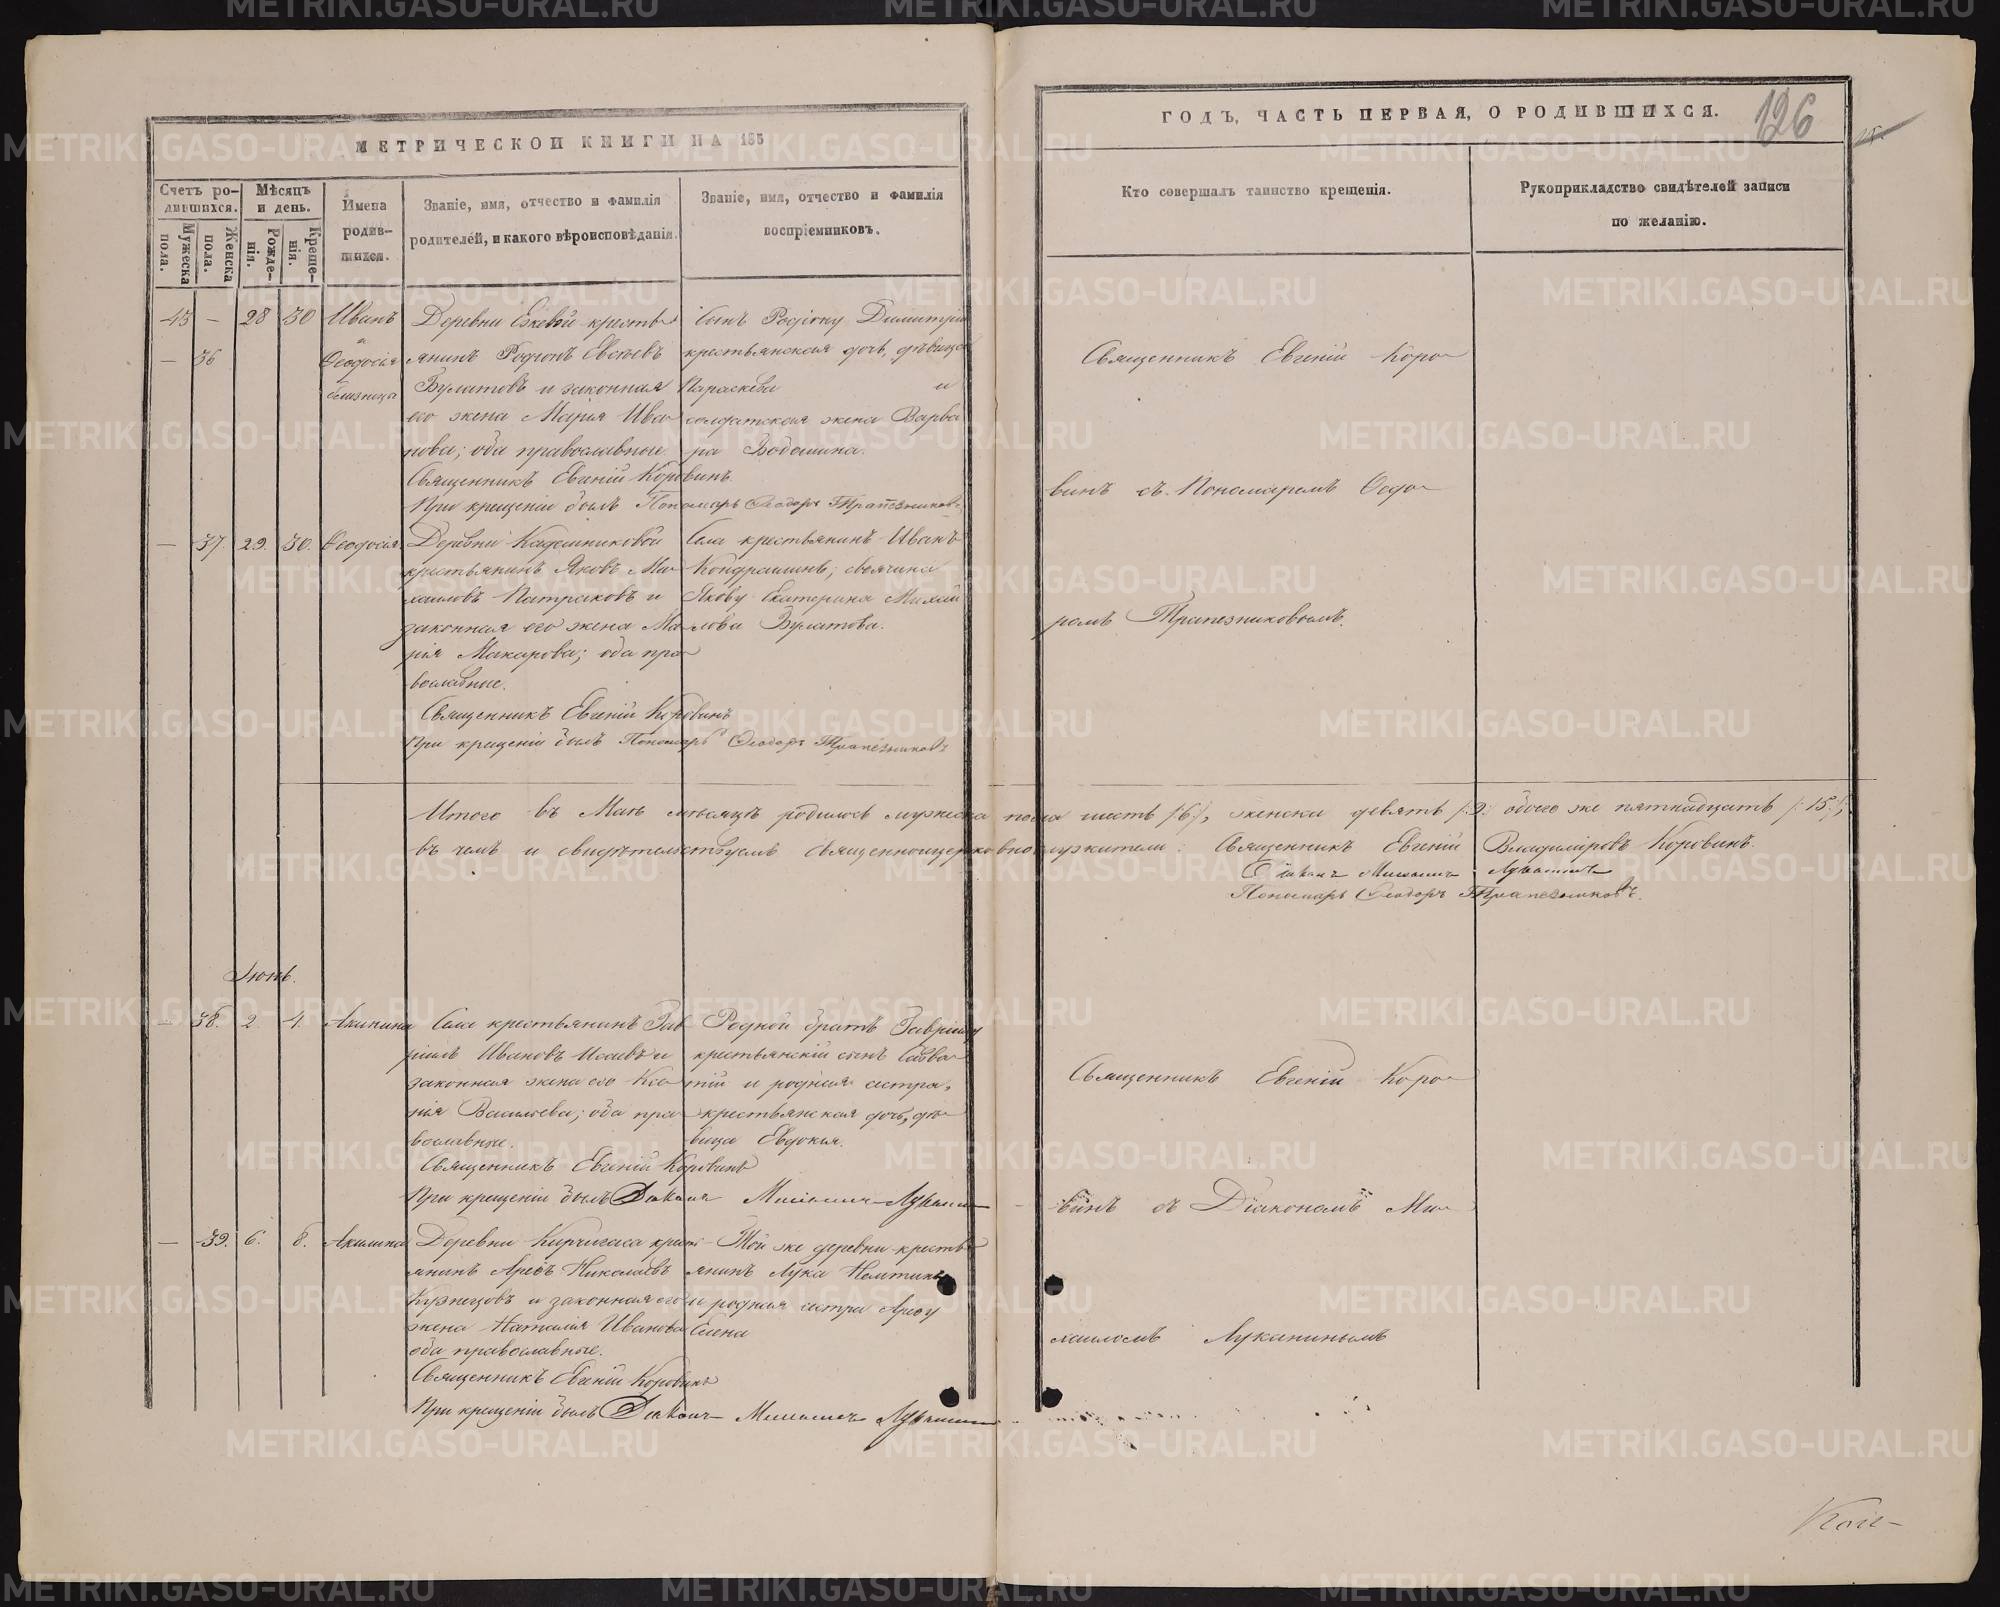 МЕТРИЧЕСКОЙ КНИГИ НА 185
ГОДЪ, ЧАСТЬ ПЕРВАЯ, О РОДИВШИХСЯ.
126
Счетъ ро-
дившихся.
Мужеска пола.
Женска пола.
Мѣсяцъ
и день.
Рожде-
нія.
Креще-
нія.
Имена
родив-
шихся.
Званіе, имя, отчество и фамилія
родителей, и какого вѣроисповѣданія.
Званіе, имя, отчество и фамилія
воспріемниковъ.
Кто совершалъ таинство крещенія.
Рукоприкладство свидѣтелей записи
по желанію.
28 30 Иванъ
и
— 36 Ѳеодосія
близнецы
Деревни крестья-
янинъ Родіонъ
Булатовъ и законная
его жена Марія Ива-
нова; оба православные.
Священникъ Евгеній Коровинъ.
При крещеніи былъ Пономарь Ѳеодоръ Трапезниковъ.
Сынъ Родіону Димитрій
крестьянская дочь, дѣвица
Параскева и
солдатская жена Варва-
ра
Священникъ Евгеній Коро-
винъ съ Пономаремъ Ѳеодо-
ромъ Трапезниковымъ.
— 37. 29. 30. Ѳеодосія
Деревни
крестьянинъ Яковъ Ми-
хаиловъ Патраковъ и
законная его жена Ма-
рія Макарова; оба пра-
вославные.
Священникъ Евгеній Коровинъ
При крещеніи былъ Пономарь Ѳеодоръ Трапезниковъ
Села крестьянинъ Иванъ
Кондрашинъ; своячина
Якову Екатерина Михай-
лова Булатова.
Итого въ Маѣ мѣсяцѣ родилось мужеска пола шесть /:6:/, женска девять /:9:/ обоего же пятнадцать /:15:/;
въ чемъ и свидѣтельствуемъ священноцерковнослужители: Священникъ Евгеній Владиміровъ Коровинъ.
Діаконъ Михаилъ Луканинъ
Пономарь Ѳеодоръ Трапезниковъ.
Іюнь.
— 38. 2 4 Акилина
Села крестьянинъ Гав-
ріилъ Ивановъ Исаевъ и
законная жена его Ксе-
нія Васильева; оба пра-
вославные.
Священникъ Евгеній Коровинъ
При крещеніи былъ Діаконъ Михаилъ Луканинъ
Родной братъ Гавріилу
крестьянскій сынъ Савва-
тій и родная сестра,
крестьянская дочь, дѣ-
вица Евдокія.
Священникъ Евгеній Коро-
винъ съ Діакономъ Ми-
хаиломъ Луканинымъ
— 39. 6. 8. Акилина
Деревни Кирчигаза кресть-
янинъ Арефъ Николаевъ
Кузнецовъ и законная его
жена Наталія Иванова
оба православные.
Священникъ Евгеній Коровинъ
При крещеніи былъ Діаконъ Михаилъ Луканинъ
Той же деревни кресть-
янинъ Лука
и родная сестра Арефу
Елена
METRIKI.GASO-URAL.RU